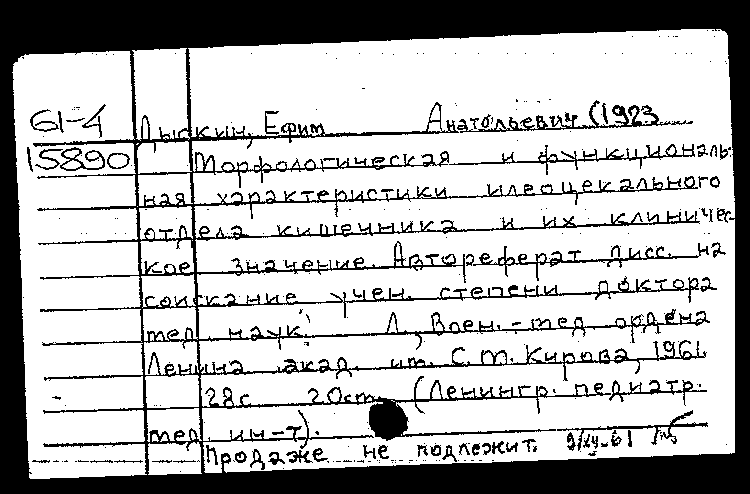 61-4 Дыскин, Ефим Анатольевич (1923
15890 Морфологическая и функциональ-
ная характеристики илеоцекального
отдела кишечника и их клиничес
кое значение. Автореферат дисс. на
соискание учен. степени доктора
мед. наук. Л., Воен.-мед. ордена
Ленина акад. им. С. М. Кирова, 1961.
28с 20см. (Ленингр. педиатр.
мед. ин-т).
Продаже не подлежит.